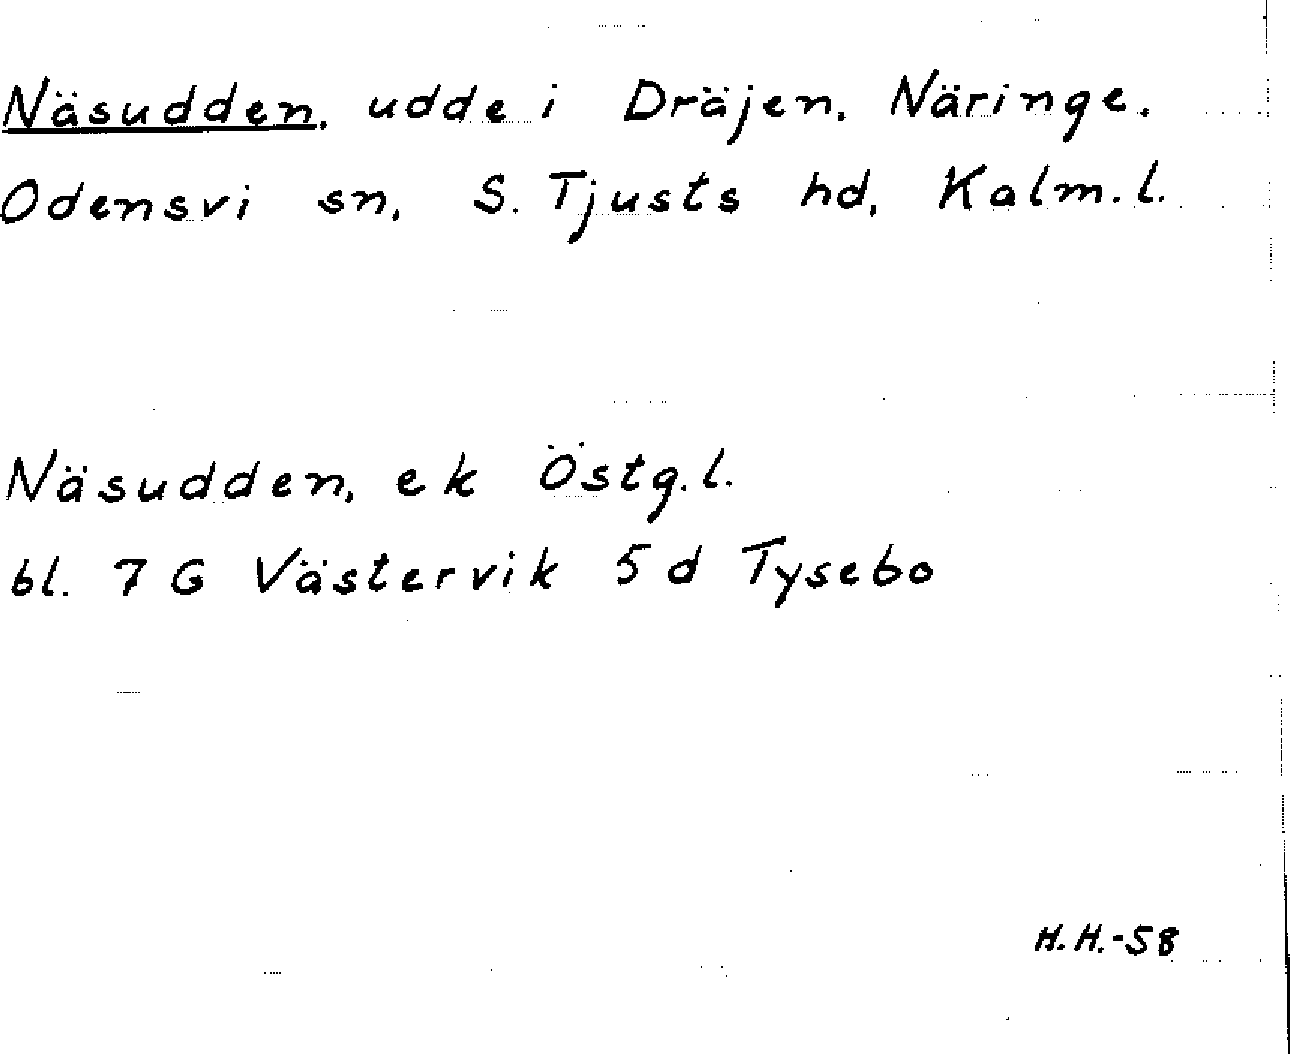 Näsudden, udde i Dräjen, Näringe.
Odensvi sn, S. Tjusts hd, Kalm. l.
Näsudden, ek Östg. l.
bl. 7 G Västervik 5 d Tysebo
H. H. -58